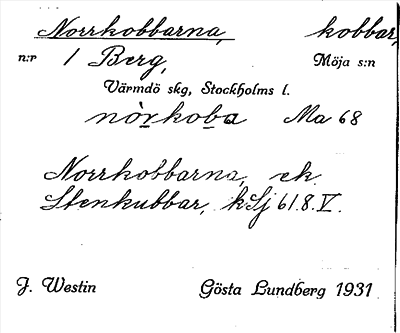 Norrkobbarna, kobbar,
n:r 1 Berg, Möja s:n
Värmdö skg, Stockholms l.
nòrkoba Ma 68
Norrkobbarna, ek.
Stenkubbar, kSj 61.8.V.
J. Westin Gösta Lundberg 1931